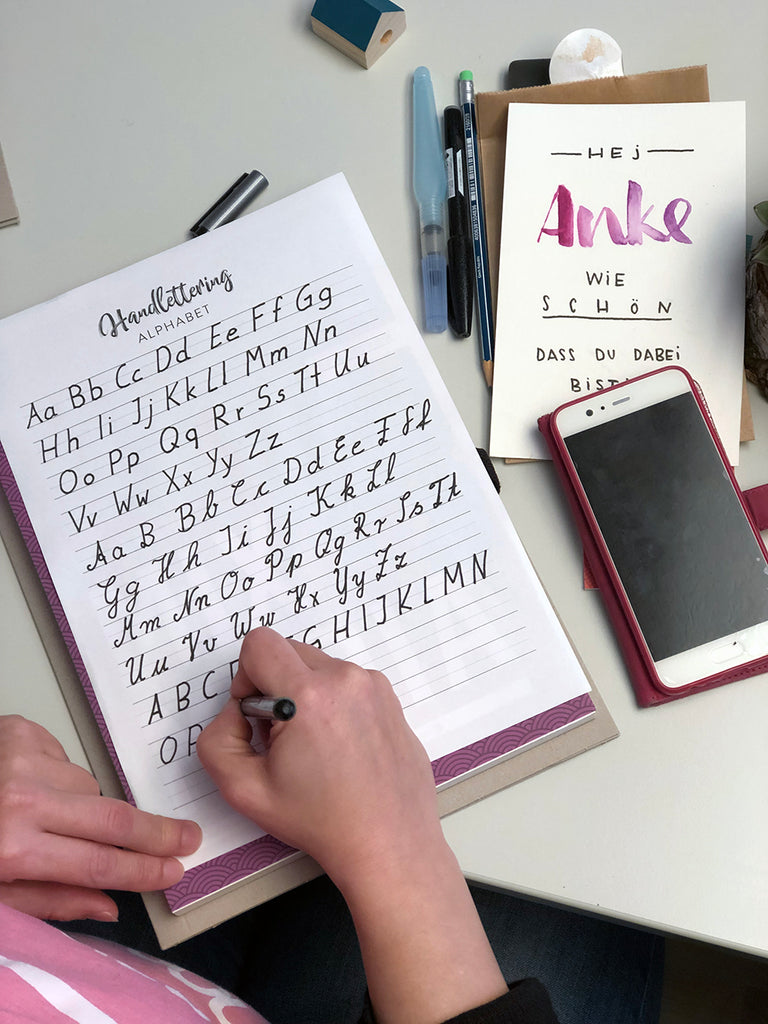 Handlettering
ALPHABET
Aa Bb Cc Dd Ee Ff Gg
Hh Ii Jj Kk Ll Mm Nn
Oo Pp Qq Rr Ss Tt Uu
Vv Ww Xx Yy Zz
Aa B Bb Cc Dd Ee F Ff
Gg Hh Ii Jj Kk Ll
Mm Nn Oo Pp Qq Rr Ss Tt
Uu Vv Ww Xx Yy Zz
A B C G H I J K L M N
O P
HEj
Anke
WiE
SCHÖN
DASS DU DABEi
BiST